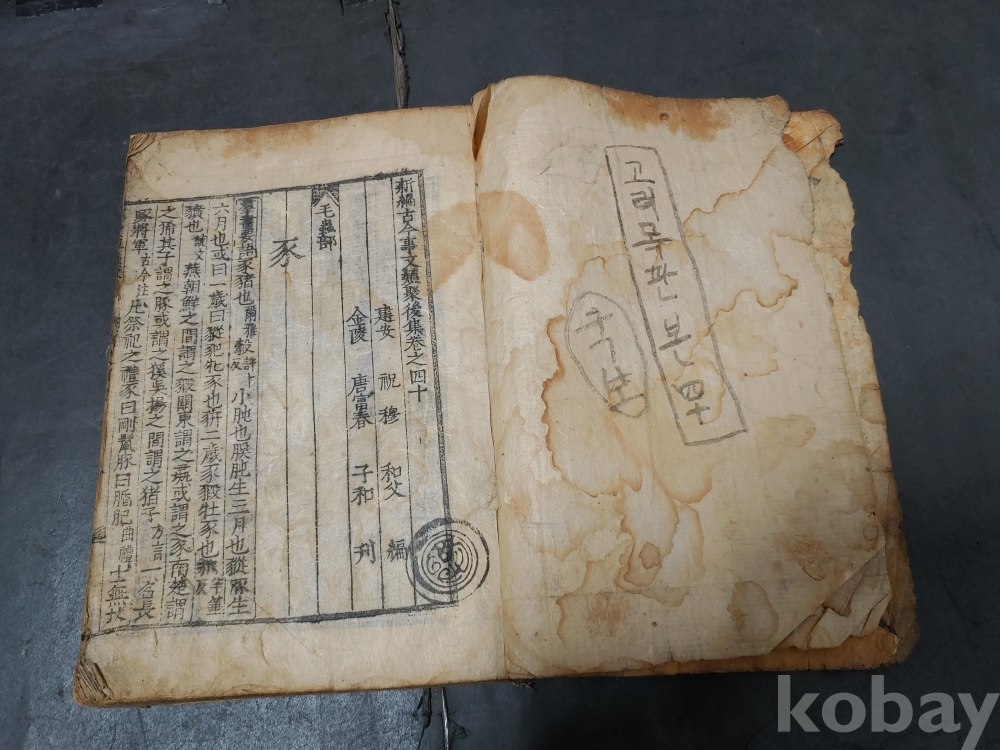 고려목판본 四十
新編古今事文類聚後集卷之四十
建安 祝穆 和父 編
金陵 唐富春 子和 刋
毛蟲部
豕
羣書要語豕豬也爾雅
小豘也
生三月也豵豚生
六月也或曰一歲曰豵豝牝豕也豜二歲豕豭牡豕也
豶也說文燕朝鮮之間謂之豭關東謂之彘或謂之豕南楚謂
之豨其子謂之豚或謂之豯吳揚之間謂之猪子方言一名長
豚將軍古今注凡祭祀之禮豕曰剛鬣豚曰腯肥曲禮士無故
kobay